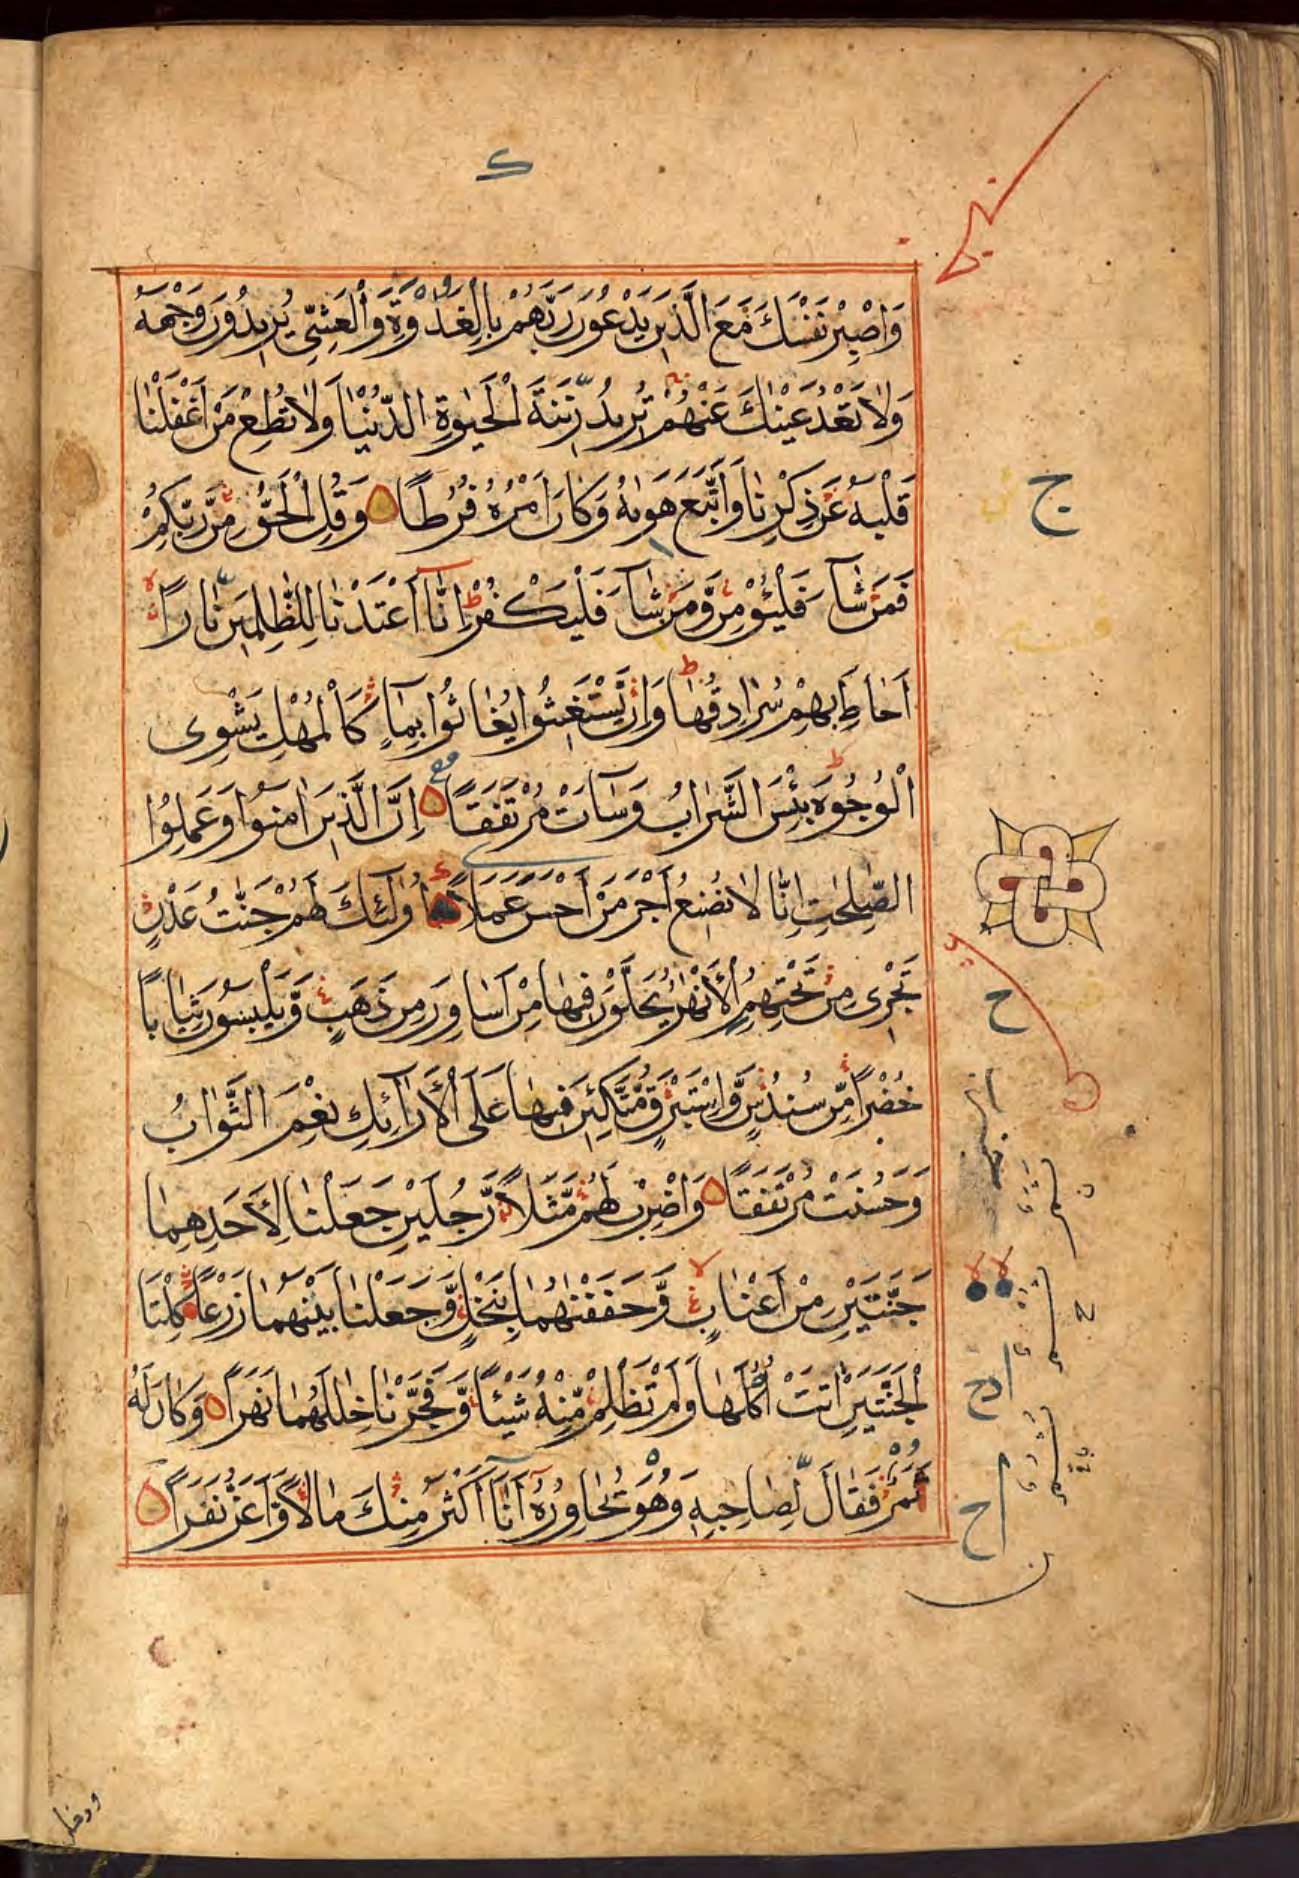 ك
وَاصْبِرْ نَفْسَكَ مَعَ الَّذِينَ يَدْعُونَ رَبَّهُمْ بِالْغَدٰوةِ وَالْعَشِيِّ يُرِيدُونَ وَجْهَهُ
وَلَا تَعْدُ عَيْنٰكَ عَنْهُمْ تُرِيدُ زِينَةَ الْحَيٰوةِ الدُّنْيَا وَلَا تُطِعْ مَنْ أَغْفَلْنَا
قَلْبَهُ عَنْ ذِكْرِنَا وَاتَّبَعَ هَوٰىهُ وَكَانَ أَمْرُهُ فُرُطًا وَقُلِ الْحَقُّ مِنْ رَبِّكُمْ
فَمَنْ شَآءَ فَلْيُؤْمِنْ وَمَنْ شَآءَ فَلْيَكْفُرْ إِنَّآ أَعْتَدْنَا لِلظّٰلِمِينَ نَارًا
أَحَاطَ بِهِمْ سُرَادِقُهَا وَإِنْ يَسْتَغِيثُوا يُغَاثُوا بِمَآءٍ كَالْمُهْلِ يَشْوِى
الْوُجُوهَ بِئْسَ الشَّرَابُ وَسَآءَتْ مُرْتَفَقًا إِنَّ الَّذِينَ اٰمَنُوا وَعَمِلُوا
الصّٰلِحٰتِ إِنَّا لَا نُضِيعُ أَجْرَ مَنْ أَحْسَنَ عَمَلًا أُولٰٓئِكَ لَهُمْ جَنّٰتُ عَدْنٍ
تَجْرِى مِنْ تَحْتِهِمُ الْأَنْهٰرُ يُحَلَّوْنَ فِيهَا مِنْ أَسَاوِرَ مِنْ ذَهَبٍ وَيَلْبَسُونَ ثِيَابًا
خُضْرًا مِنْ سُنْدُسٍ وَإِسْتَبْرَقٍ مُتَّكِئِينَ فِيهَا عَلَى الْأَرَآئِكِ نِعْمَ الثَّوَابُ
وَحَسُنَتْ مُرْتَفَقًا وَاضْرِبْ لَهُمْ مَثَلًا رَجُلَيْنِ جَعَلْنَا لِأَحَدِهِمَا
جَنَّتَيْنِ مِنْ أَعْنَابٍ وَحَفَفْنٰهُمَا بِنَخْلٍ وَجَعَلْنَا بَيْنَهُمَا زَرْعًا كِلْتَا
الْجَنَّتَيْنِ اٰتَتْ أُكُلَهَا وَلَمْ تَظْلِمْ مِنْهُ شَيْئًا وَفَجَّرْنَا خِلٰلَهُمَا نَهَرًا وَكَانَ لَهُ
ثَمَرٌ فَقَالَ لِصَاحِبِهِ وَهُوَ يُحَاوِرُهُ أَنَا أَكْثَرُ مِنْكَ مَالًا وَأَعَزُّ نَفَرًا
ح
ح
ودخل